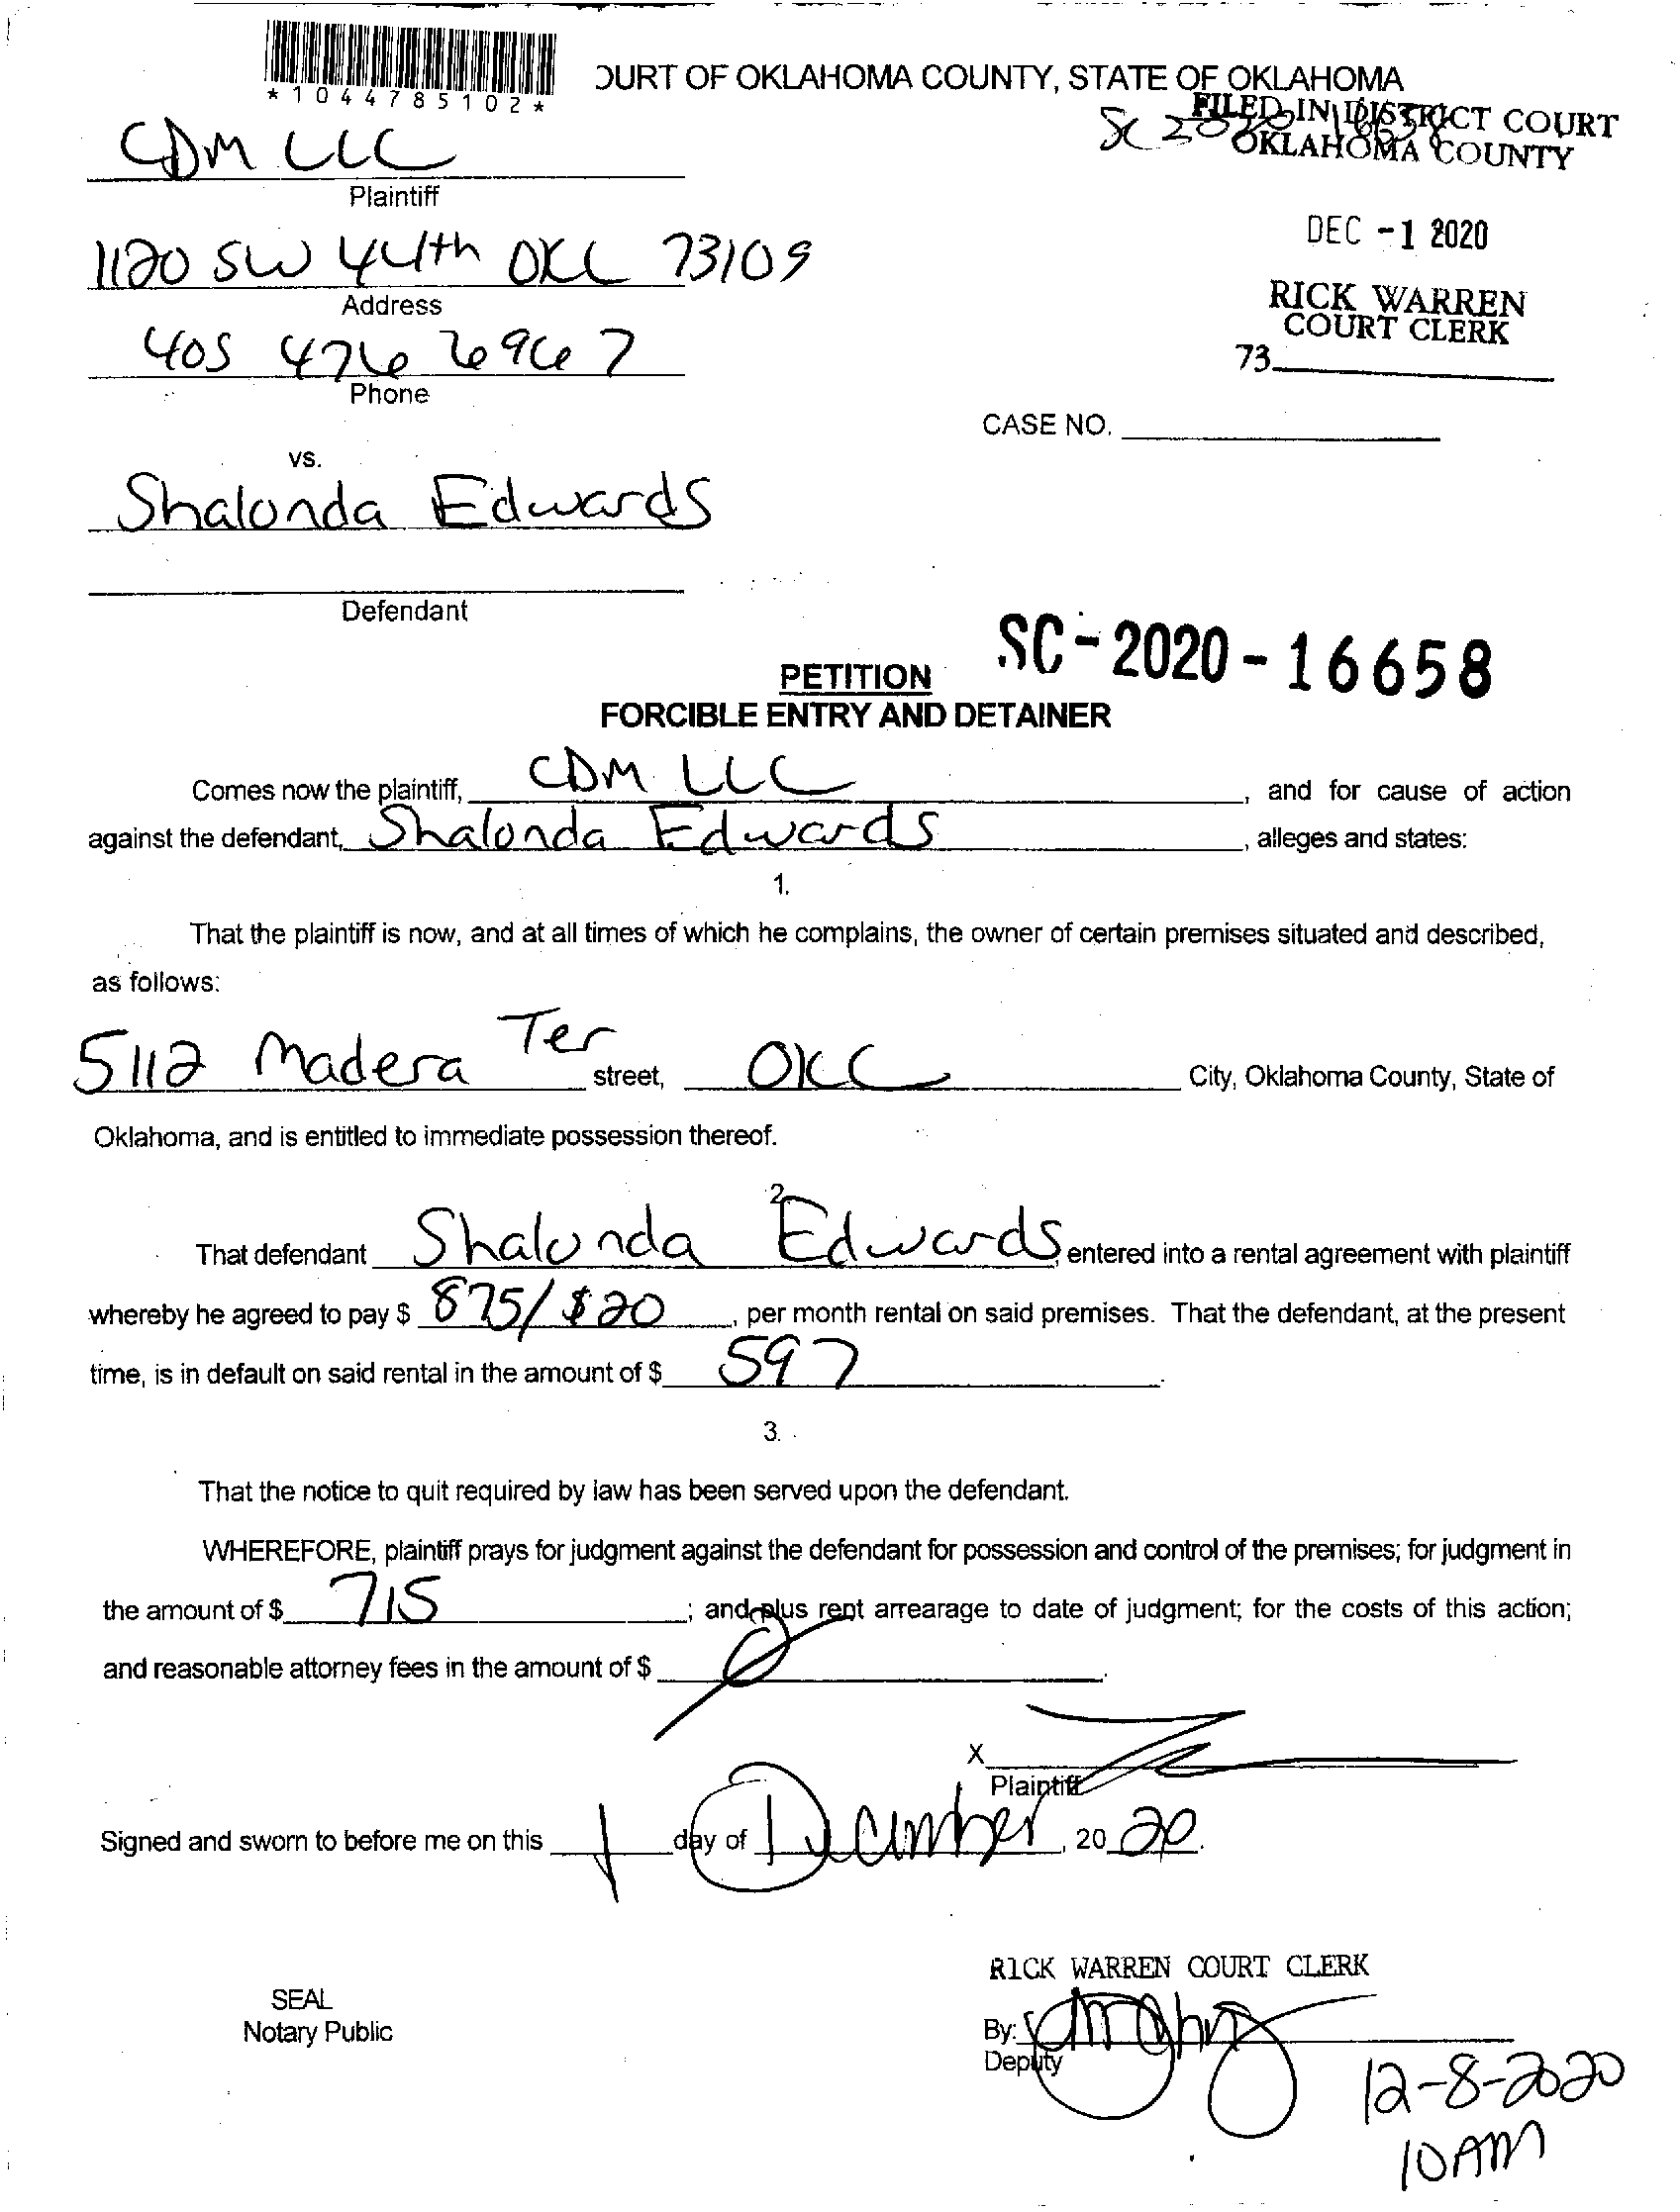 *1044785102*
OURT OF OKLAHOMA COUNTY, STATE OF OKLAHOMA
FILED IN DISTRICT COURT
OKLAHOMA COUNTY
CDM LLC
Plaintiff
DEC -1 2020
1120 SW 44th OKC 73109
Address
RICK WARREN
COURT CLERK
405 476 6967
73
Phone
CASE NO.
vs.
Shalonda Edwards
Defendant
SC-2020-16658
PETITION
FORCIBLE ENTRY AND DETAINER
Comes now the plaintiff, CDM LLC, and for cause of action
against the defendant, Shalonda Edwards, alleges and states:
1.
That the plaintiff is now, and at all times of which he complains, the owner of certain premises situated and described,
as follows:
5112 Madera Ter street, OKC City, Oklahoma County, State of
Oklahoma, and is entitled to immediate possession thereof.
2.
That defendant Shalonda Edwards, entered into a rental agreement with plaintiff
whereby he agreed to pay $ 875/$20, per month rental on said premises. That the defendant, at the present
time, is in default on said rental in the amount of $ 597.
3.
That the notice to quit required by law has been served upon the defendant.
WHEREFORE, plaintiff prays for judgment against the defendant for possession and control of the premises; for judgment in
the amount of $ 715; and plus rent arrearage to date of judgment; for the costs of this action;
and reasonable attorney fees in the amount of $
X
Plaintiff
Signed and sworn to before me on this 1 day of December, 2020.
RICK WARREN COURT CLERK
SEAL
Notary Public
By:
Deputy
12-8-2020
10AM